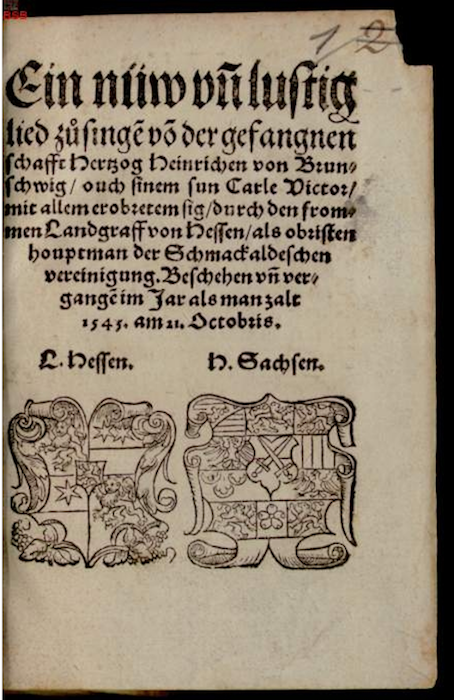 BSB
12
Ein nüw vñ lustig
lied zů singẽ võ der gefangnen
schafft Hertzog Heinrichen von Brun-
schwig/ ouch sinem sun Carle Victor/
mit allem erobretem sig/durch den from-
men Landgraff von Hessen/als obristen
houptman der Schmackaldeschen
vereinigung. Beschehen vñ ver-
gangẽ im Jar als man zalt
1545. am 11. Octobris.
L. Hessen. H. Sachsen.